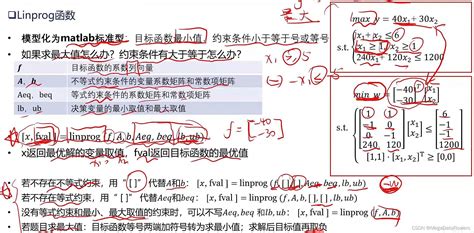 Linprog函数
模型化为matlab标准型：目标函数最小值，约束条件小于等于号或等号
如果求最大值怎么办？约束条件有大于等于怎么办？
f 目标函数的系数列向量
A、b 不等式约束条件的变量系数矩阵和常数项矩阵
Aeq、beq 等式约束条件的系数矩阵和常数项矩阵
lb、ub 决策变量的最小取值和最大取值
[x, fval] = linprog (f, A, b, Aeq, beq, lb, ub)
x返回最优解的变量取值，fval返回目标函数的最优值
若不存在不等式约束，用 "[]" 代替A和b：[x, fval] = linprog (f, [], [], Aeq, beq, lb, ub)
若不存在等式约束，用 "[]" 代替Aeq和beq：[x, fval] = linprog (f, A, b, [], [], lb, ub)
没有等式约束和最小、最大取值的约束时，可以不写Aeq, beq 和lb, ub：[x, fval] = linprog (f, A, b)
若题目求最大值：目标函数等号两端加符号转为求最小值；求解后目标值再取负
最大
max y = 40x₁ + 30x₂
s.t. x₁ + x₂ ≤ 6
x₁ ≥ 1, x₂ ≥ 1
240x₁ + 120x₂ ≤ 1200
x₁ > 5
-x₁ ≤ -5
f = [-40
-30]
min w = [-40
-30]ᵀ [x₁
x₂]
s.t. [1 1
-1 0
0 -1
240 120] [x₁
x₂] ≤ [6
-1
-1
1200]
[1,1] · [x₁, x₂]ᵀ ≥ [0,0]